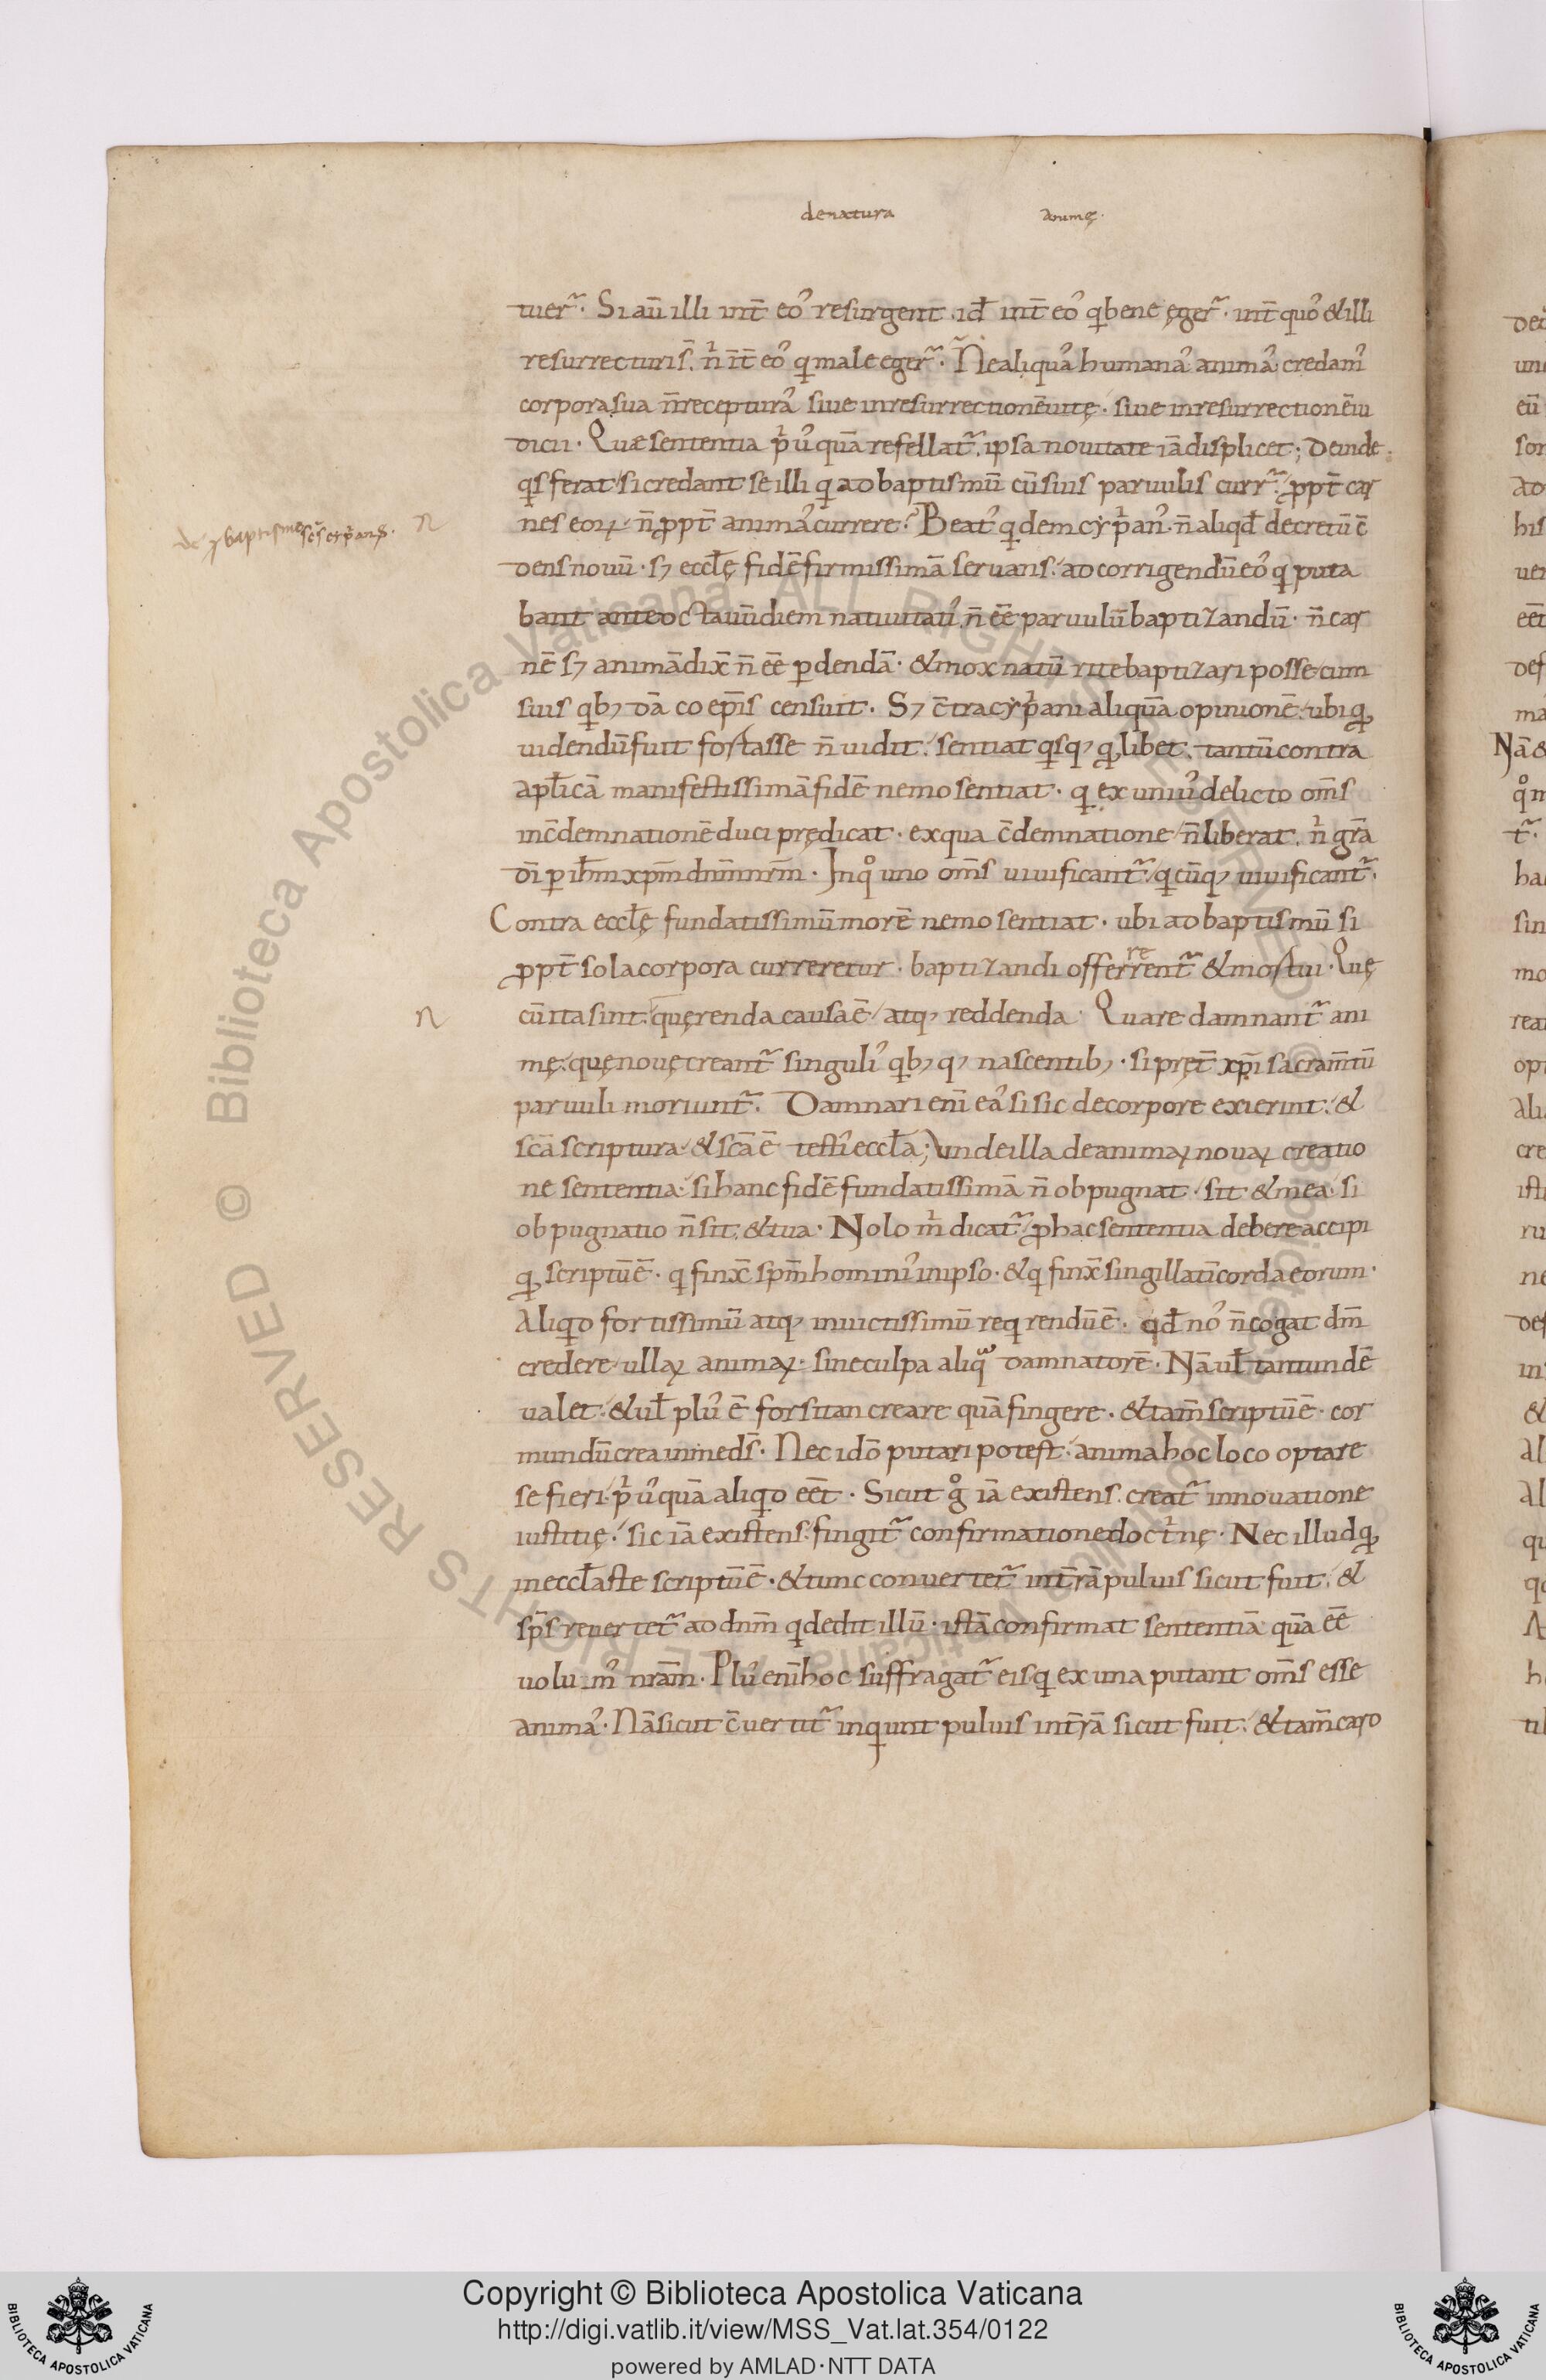 de natura animę·
tuer̃· Si aū illi int̄ eoꝰ resurgent· id̄ int̄ eoꝰ qui bene ęger̃· int̄ quoꝰ & illi
resurrecturi s̄· nͥ īt̄ eoꝰ qui male eger̃· Ne aliquaꝰ humanaꝰ animaꝰ credamꝰ
corpora sua n̄ recepturaꝰ siue in resurrectionē uitę· siue in resurrectionē iu
dicii· Quæ sententia pͥusquā refellat̃· ipsa nouitate iā displicet; Deinde
qͥs ferat si credant se illi qui ad baptismū cū suis paruulis curr̃· ꝓpt̄ car
nes eoꝝ n̄ ꝓpt̄ animaꝰ currere? Beatꝰ quidem cypͥanꝰ· n̄ aliqd̄ decretū c̄
dens nouū· sꝫ eccłę fidē firmissimā seruans· ad corrigendū eoꝰ qui puta
bant ante octauū diem natiuitatiꝰ n̄ eē paruulū baptizandū· n̄ car
nē sꝫ animā dix̄ n̄ eē ꝑdendā· & mox natū rite baptizari posse cum
suis qͥbꝫ dā coep̄is censuit· Sꝫ c̄tra cypͥani aliquā opinionē· ubi qđ
uidendū fuit fortasse n̄ uidit· sentiat qͥsqꝫ qđ libet· tantū contra
apłicā manifestissimā fidē nemo sentiat· qui ex uniuꝰ delicto om̄s
in c̄demnationē duci prędicat· ex qua c̄demnatione n̄ liberat· nͥ gr̄a
dī ꝑ ih̄m xp̄m dn̄m nr̄m· In qͦ uno om̄s uiuificant̃· qui cūqꝫ uiuificant̃·
Contra eccłę fundatissimū morē nemo sentiat· ubi ad baptismū si
ꝓpt̄ sola corpora curreretur· baptizandi offerrent̃ & mortui· Quę
re
cū ita sint· quęrenda causa ē atqꝫ reddenda· Quare damnant̃ ani
mę· quę nouę creant̃ singuliꝰ qͥbꝫqꝫ nascentibꝫ· si pręt̄ xp̄i sacram̄tū
paruuli moriunt̃· Damnari enī eaꝰ si sic de corpore exierint· &
sc̄a scriptura & sc̄a ē testiꝰ eccła; Unde illa de animaꝝ nouaꝝ creatio
ne sententia· si hanc fidē fundatissimā n̄ obpugnat· sit & mea· si
obpugnatio n̄ sit· & tua· Nolo mͥ dicat̃ ꝓ hac sententia debere accipi
qđ scriptū ē· qui finx̄ sp̄m hominiꝰ in ipso· & qui finx̄ singillatī corda eorum·
Aliquid fortissimū atqꝫ inuictissimū requirendū ē· qd̄ noꝰ n̄ cogat dm̄
credere ullaꝝ animaꝝ· sine culpa aliqua damnatorē· Nā uł tantundē
ualet· & uł plꝰ ē forsitan creare quā fingere· & tam̄ scriptū ē· cor
mundū crea in me ds̄· Nec idō putari potest· anima hoc loco optare
se fieri· pͥusquā aliquid eēt· Sicut gͦ iā existens· creat̃ innouatione
iustitię· sic iā existens· fingit̃ confirmatione doctͥnę· Nec illud qđ
in eccłaste scriptū ē· & tunc conuertet̃ in t̄rā puluis sicut fuit· &
sp̄s reuertet̃ ad dn̄m qui dedit illū· istā confirmat sententiā quā eē
uolumꝰ nr̄am· Plꝰ enī hoc suffragat̃ eis qui ex una putant om̄s esse
animaꝰ· Nā sicut c̄uertit̃ inquiunt puluis in t̄rā sicut fuit· & tam̄ caro
n
n
Copyright © Biblioteca Apostolica Vaticana
http://digi.vatlib.it/view/MSS_Vat.lat.354/0122
powered by AMLAD·NTT DATA
BIBLIOTECA APOSTOLICA VATICANA
BIBLIOTECA APOSTOLICA VATICANA